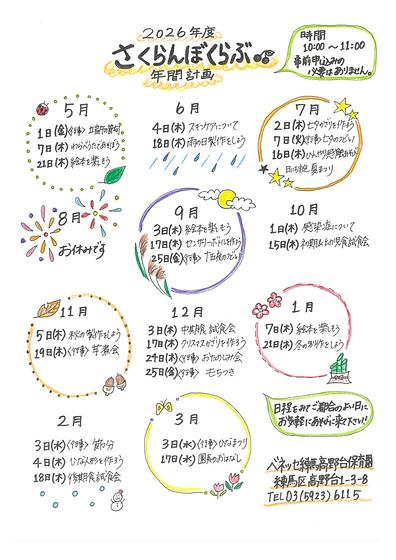 2026年度
さくらんぼくらぶ
年間計画
時間
10:00～11:00
事前申込みの
必要はありません。
5月
1日(金)〈行事〉
7日(木)
21日(木) 絵本を楽しもう
6月
4日(木) スキンケアについて
18日(木) 雨の日製作をしよう
7月
2日(木) 七夕かざりを作ろう
7日(火)〈行事〉七夕のつどい
16日(木)
夏まつり
8月
お休みです
9月
3日(木) 絵本を楽しもう
17日(木) センサリーボトルを作ろう
25日(金)〈行事〉十五夜のつどい
10月
1日(木) 感染症について
15日(木) 初期
試食会
11月
5日(木) 秋の製作をしよう
19日(木)〈行事〉芋煮会
12月
3日(木) 中期食試食会
17日(木) クリスマスかざりを作ろう
24日(木)〈行事〉おたのしみ会
25日(金)〈行事〉もちつき
1月
7日(木) 絵本を楽しもう
21日(木) 冬の製作をしよう
2月
3日(水)〈行事〉節分
4日(木) ひな人形を作ろう
18日(木) 後期食試食会
3月
3日(水)〈行事〉ひなまつり
17日(水) 園長のおはなし
日程をみてご都合のよい日に
お気軽にあそびに来て下さい！
ベネッセ練馬高野台保育園
練馬区高野台1-3-8
TEL 03(5923)6115